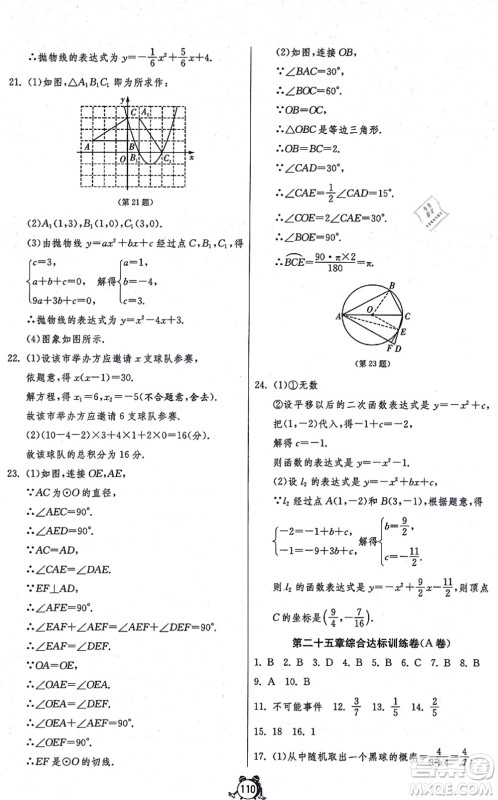 ∴抛物线的表达式为 y=-1/6x²+5/6x+4.
21. (1)如图,△A₁B₁C₁ 即为所求作:
y
C A₁
A B
O B₁ C₁ x
(第21题)
(2)A₁(1,3),B₁(1,0),C₁(3,0).
(3)由抛物线 y=ax²+bx+c 经过点 C,B₁,C₁,得
{c=3, a+b+c=0, 9a+3b+c=0, 解得{a=1, b=-4, c=3,
∴抛物线的表达式为 y=x²-4x+3.
(4)图象如图所示.
22. (1)设该市举办方应邀请 x 支球队参赛,
依题意,得 x(x-1)=30.
解方程,得 x₁=6,x₂=-5(不合题意,舍去).
故该市举办方应邀请 6 支球队参赛.
(2)(10-4-2)×3+4×1+2×0=16(分).
故该球队的总积分为 16 分.
23. (1)如图,连接 OE,AE,
∵AC 为⊙O 的直径,
∴∠AEC=90°.
∴∠AED=90°.
∵AC=AD,
∴∠CAE=∠DAE.
∵EF⊥AD,
∴∠AFE=90°.
∴∠EAF+∠AEF=∠AEF+∠DEF=90°.
∴∠EAF=∠DEF.
∵OA=OE,
∴∠OAE=∠OEA.
∴∠OEA=∠DEF.
∴∠OEA+∠AEF=90°.
∴∠OEF=90°.
∴EF 是⊙O 的切线.
(2)如图,连接 OB,
∵∠BAC=30°,
∴∠BOC=60°.
∴△OCB 是等边三角形.
∴OB=BC=2.
∵∠CAD=30°,
∴∠CAE=1/2∠CAD=15°.
∴∠COE=2∠CAE=30°.
∴∠BOE=90°.
∴BCE=90·π×2/180=π.
B
A O C
E
F D
(第23题)
24. (1)①无数
②设平移以后的二次函数表达式是 y=-x²+c,
把(1,-2)代入,得-2=-1+c.
解得 c=-1.
则函数的表达式是 y=-x²-1.
(2)设 l₂ 的函数表达式是 y=-x²+bx+c.
∵l₂ 经过点 A(1,-2)和 B(3,-1),根据题意,得
{-2=-1+b+c, -1=-9+3b+c, 解得{b=9/2, c=-11/2.
则 l₂ 的函数表达式是 y=-x²+9/2x-11/2,顶点
C 的坐标是(9/4,-7/16).
第二十五章综合达标训练卷(A卷)
1. B 2. B 3. D 4. B 5. D 6. C 7. B 8. B
9. A 10. B
11. 不可能事件 12. 3/7 13. 1/5 14. 2/5
15. 18 16. 1
17. (1)从中随机取出一个黑球的概率=4/(3+4)=4/7
110